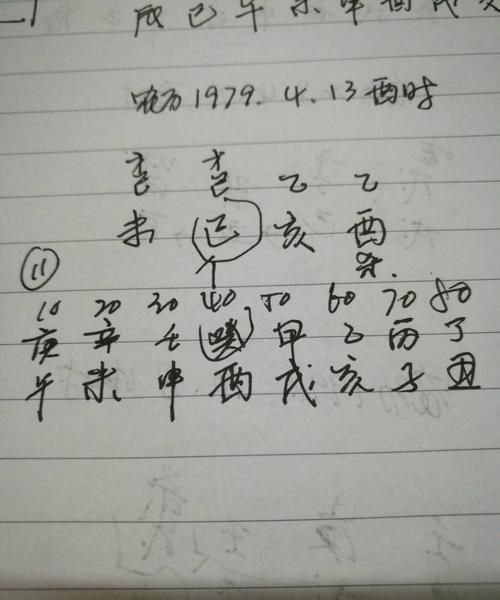 辰 巳 午 未 申 酉 戌 亥
农历 1979. 4. 13 酉时
己 己 乙 乙
未 巳 亥 酉
杀.
⑪
10 20 30 40 50 60 70 80
庚 辛 壬 癸 甲 乙 丙 丁
午 未 申 酉 戌 亥 子 丑